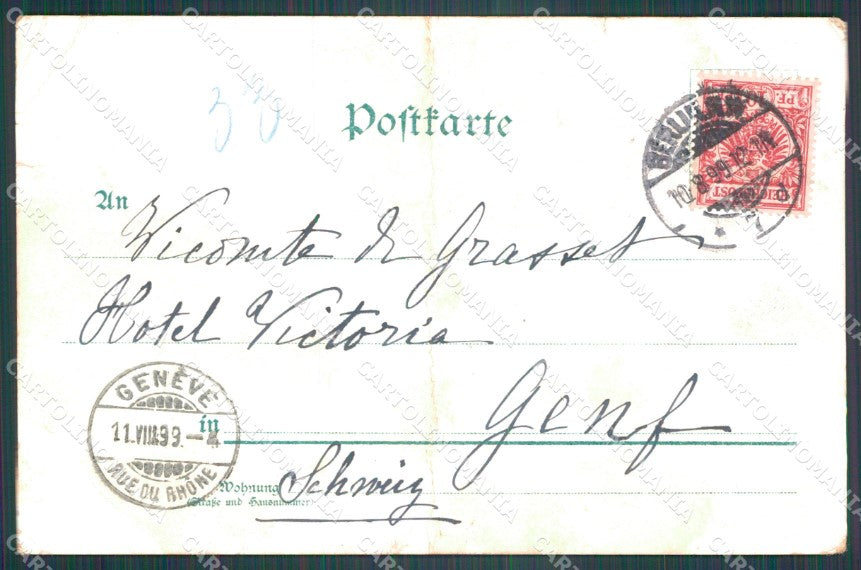 30
Postkarte
An
Vicomte de Grasset
Hotel Victoria
in Genf
Wohnung
(Straße und Hausnummer)
Schweiz
BERLIN
10.8.99.12-1N
REICHSPOST
GENÈVE
11.VIII.99.
RUE DU RHÔNE
CARTOLINOMANIA